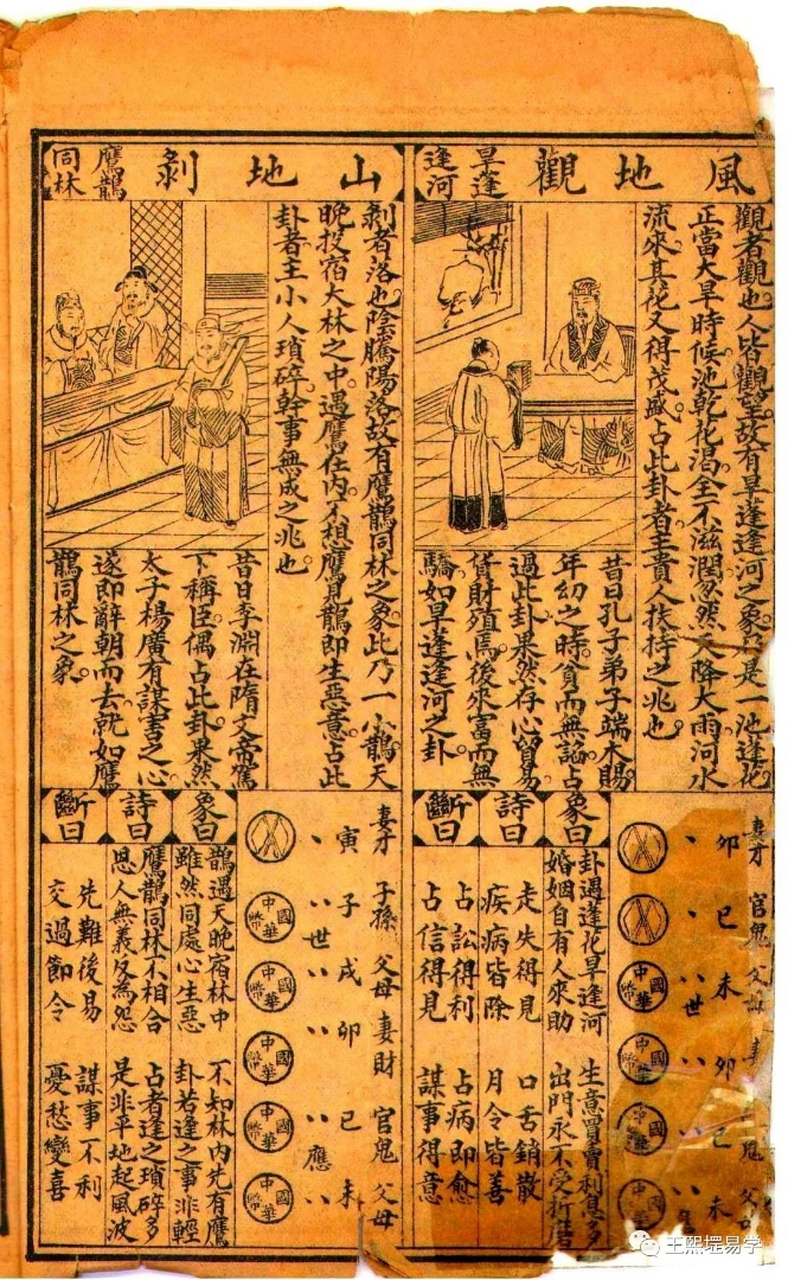 風地觀
旱蓬
逢河
觀者觀也人皆觀望故有旱蓬逢河之象此是一池蓮花
正當大旱時候池乾花渴全不滋潤忽然天降大雨河水
流來其花又得茂盛占此卦者主貴人扶持之兆也
昔日孔子弟子端木賜
年幼之時貧而無諂占
過此卦果然存心貿易
貨財殖焉後來富而無
驕如旱蓬逢河之卦
妻才 官鬼 父母 妻 鬼 父
卯 巳 未 卯 巳 未
、 、 〃世 〃 〃 〃
中華國幣
中華國幣
中華國幣
中華國幣
象曰
卦遇蓬花旱逢河 生意買賣利息多
婚姻自有人來助 出門永不受折磨
詩曰
走失得見 口舌銷散
疾病皆除 月令皆善
斷曰
占訟得利 占病即愈
占信得見 謀事得意
山地剝
鷹鵲
同林
剝者落也陰騰陽落故有鷹鵲同林之象此乃一小鵲天
晚投宿大林之中遇鷹在內不想鷹見鵲即生惡意占此
卦者主小人瑣碎幹事無成之兆也
昔日李淵在隋文帝駕
下稱臣偶占此卦果然
太子楊廣有謀害之心
遂即辭朝而去就如鷹
鵲同林之象
妻才 子孫 父母 妻財 官鬼 父母
寅 子 戌 卯 巳 未
、 〃世 〃 〃 〃應 〃
中華國幣
中華國幣
中華國幣
中華國幣
中華國幣
象曰
鵲遇天晚宿林中 不知林內先有鷹
雖然同處心生惡 卦若逢之事非輕
詩曰
鷹鵲同林不相合 占者逢之瑣碎多
恩人無義反為怨 是非平地起風波
斷曰
先難後易 謀事不利
交過節令 憂愁變喜
王熙墁易学